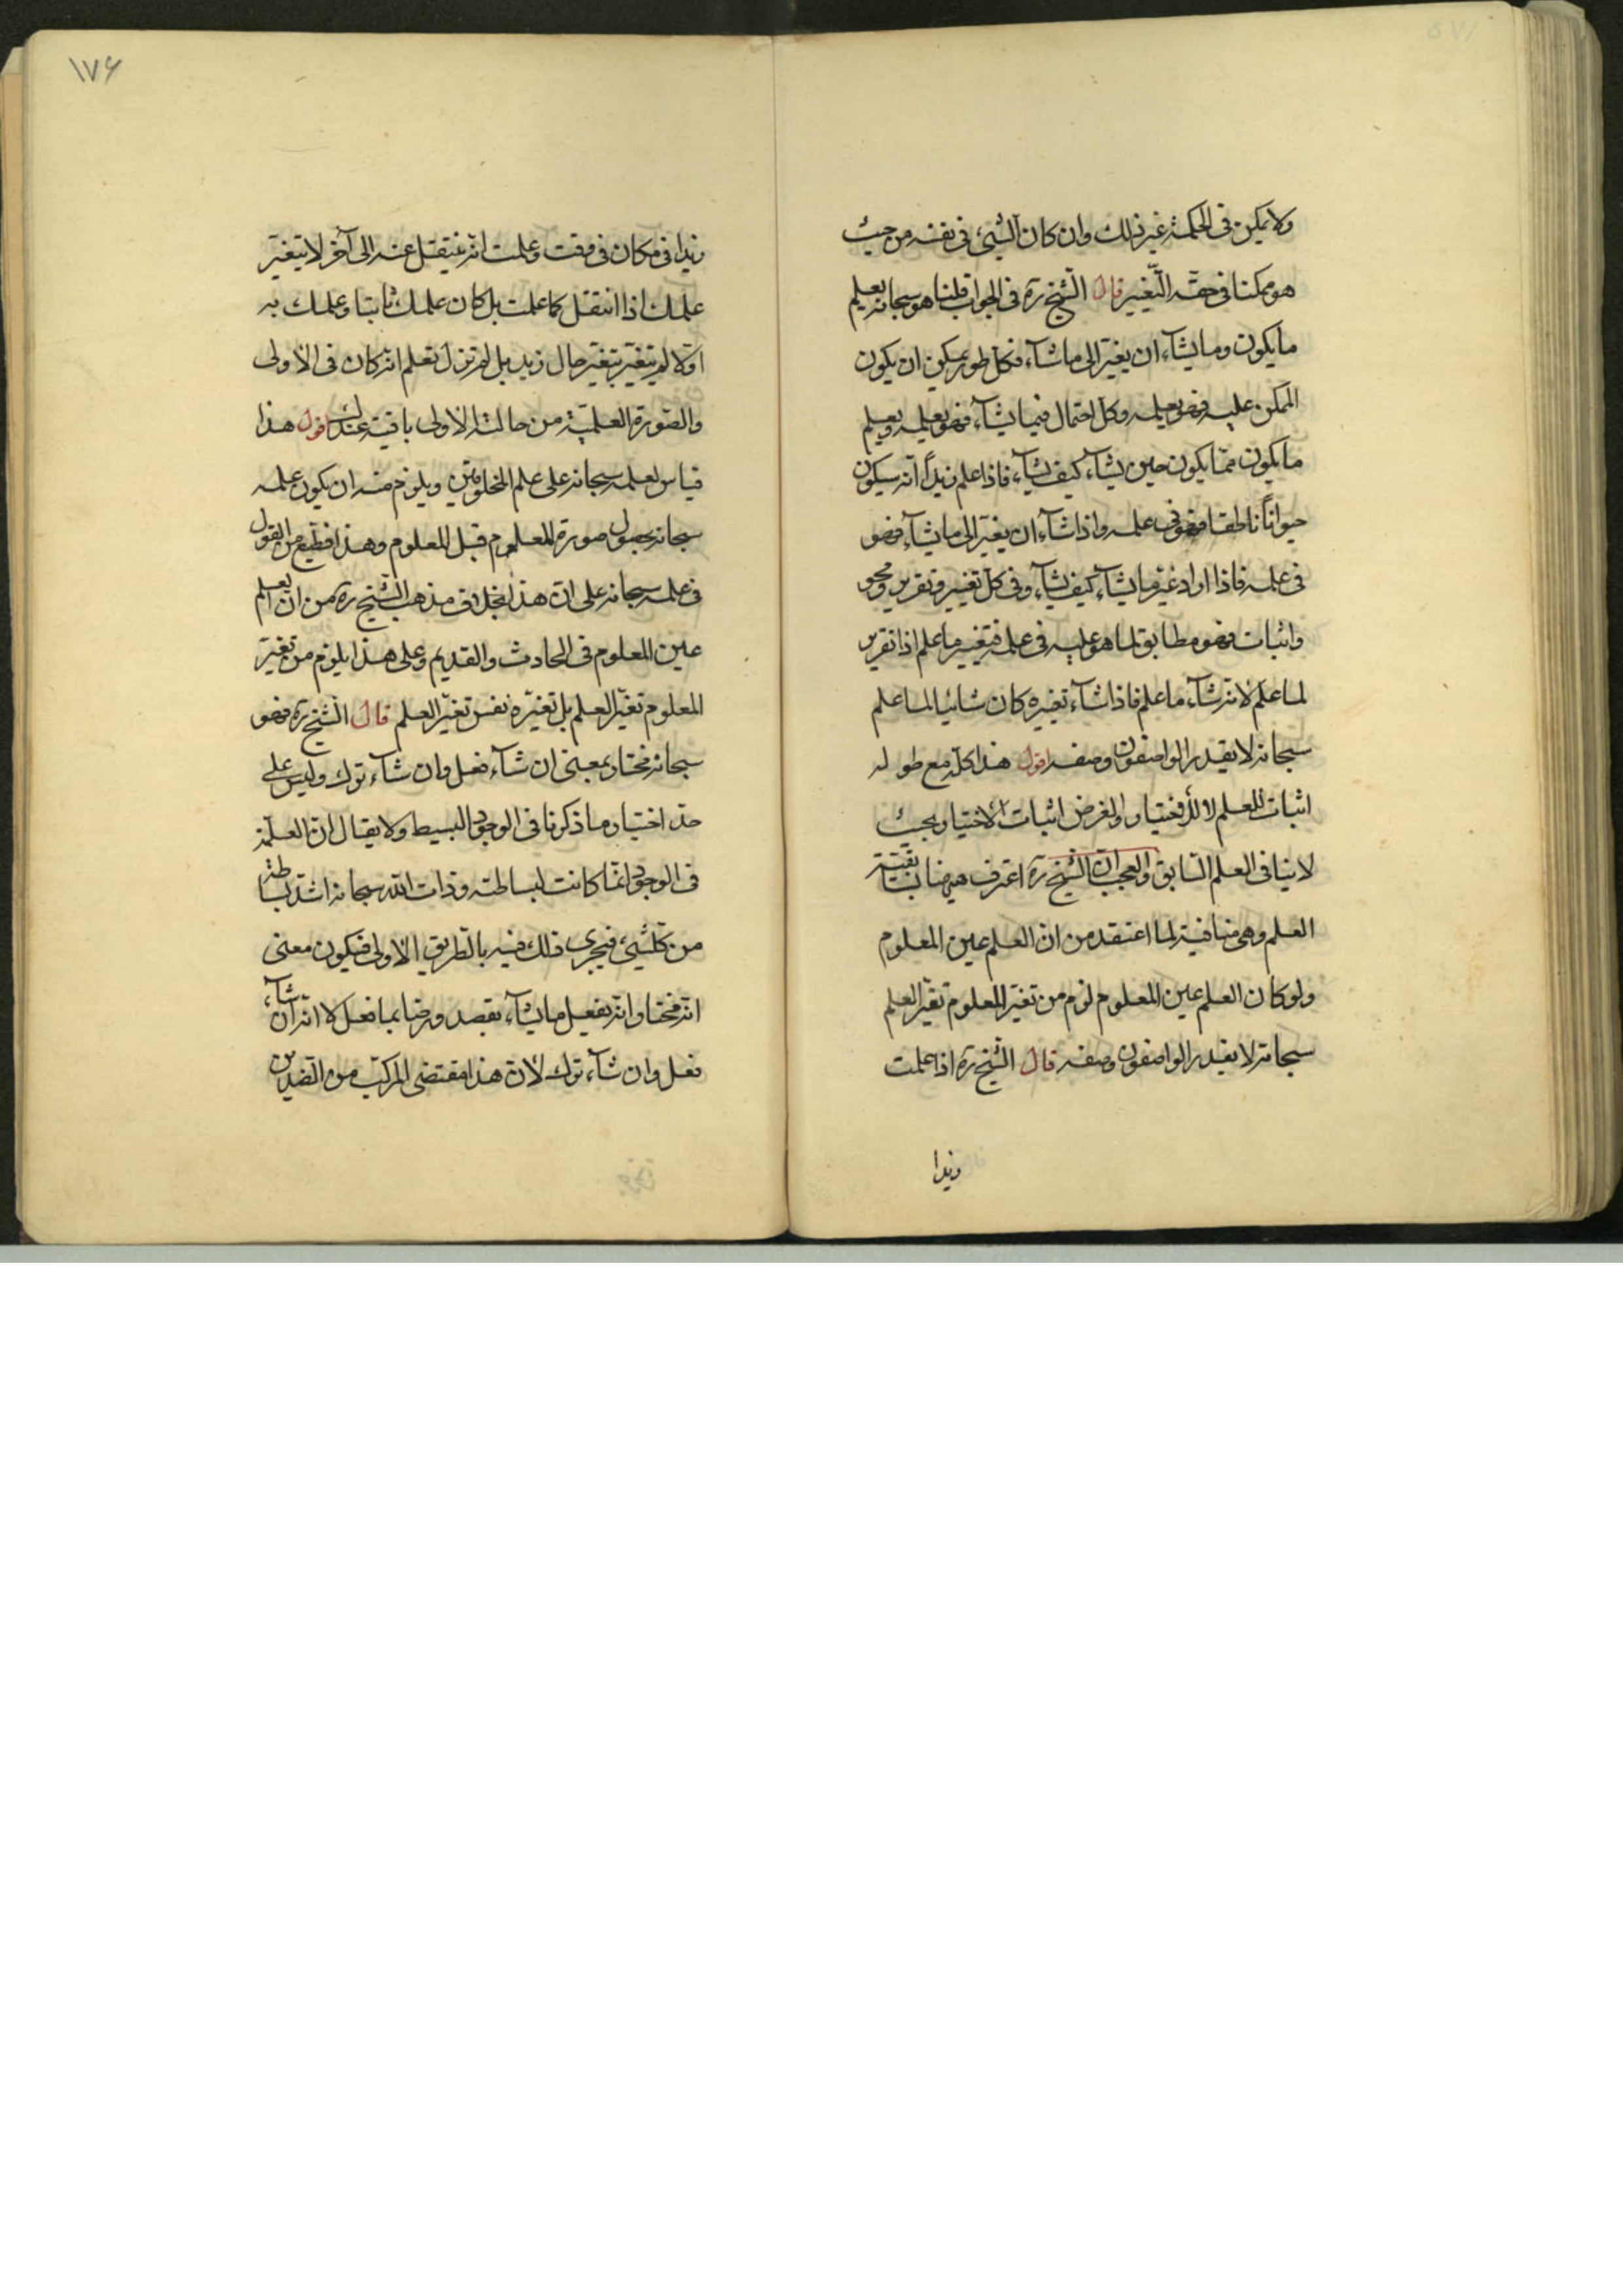 ولا يمكن فى الحكمة غير ذلك وان كان الشئ فى نفسه من حيث
هو ممكنا فى حقه التّغيير قال الشّيخ ره فى الجواب قلنا هو سبحانه يعلم
ما يكون وما يشآء ان يغيّر الى ما شآء فكل طور يمكن ان يكون
الممكن عليه فهو يعلمه وكل احتمال فيما يشآء فهو يعلمه ويعلم
ما يكون ممّا يكون حين يشآء كيف يشآء فاذا علم زيداً انّه سيكون
حيواناً ناطقا فهو فى علمه واذا شآء ان يغيّر الى ما يشآء فهو
فى علمه فاذا اراد غيّر ما يشآء كيف يشآء وفى كل تغيير وتقرير ومحو
واثبات فهو مطابق لما هو عليه فى علمه فتغيير ما علم اذا تقرير
لما علم لانه شآء ما علم فاذا شآء تغيره كان شائيا لما علم
سبحانه لا يقدر الواصفون وصفه اقول هذا كله مع طوله
اثبات للعلم لا للاختيار والغرض اثبات الاختيار بحيث
لا ينافى العلم السّابق والعجب ان الشّيخ ره اعترف هيهنا بسابقيّة
العلم وهى منافية لما اعتقد من ان العلم عين المعلوم
ولو كان العلم عين المعلوم لزم من تغيّر المعلوم تغيّر العلم
سبحانه لا يقدر الواصفون وصفه قال الشّيخ ره اذا علمت
زيدا
۱۷۶
زيدا فى مكان فى وقت وعلمت انّه ينتقل عنه الى آخر لا يتغيّر
علمك اذا انتقل كما علمت بل كان علمك ثابتا وعلمك به
اوّلا لم يتغيّر بتغيّر حال زيد بل لم تزل تعلم انّه كان فى الاولى
والصّورة العلميّة من حالته الاولى باقية عندك اقول هذا
قياس لعلمه سبحانه على علم المخلوقين ويلزم منه ان يكون علمه
سبحانه بحصول صورة المعلوم قبل المعلوم وهذا افظع من القول
فى علمه سبحانه على ان هذا بخلاف مذهب الشّيخ ره من ان العلم
عين المعلوم فى الحادث والقديم وعلى هذا يلزم من تغيّر
المعلوم تغيّر العلم بل تغيّره نفس تغيّر العلم قال الشّيخ ره فهو
سبحانه مختار بمعنى ان شآء فعل وان شآء ترك وليس على
حد اختيار ما ذكرنا فى الوجود البسيط ولا يقال ان العلّة
فى الوجود انّما كانت لبساطته وذات الله سبحانه اشد بساطة
من كلّ شئ فيجرى ذلك فيه بالطريق الاولى فيكون معنى
انّه مختار انّه يفعل ما يشآء بقصد ورضا بما فعل لا انّه ان شآء
فعل وان شآء ترك لان هذا مقتضى المركّب من الضّدين